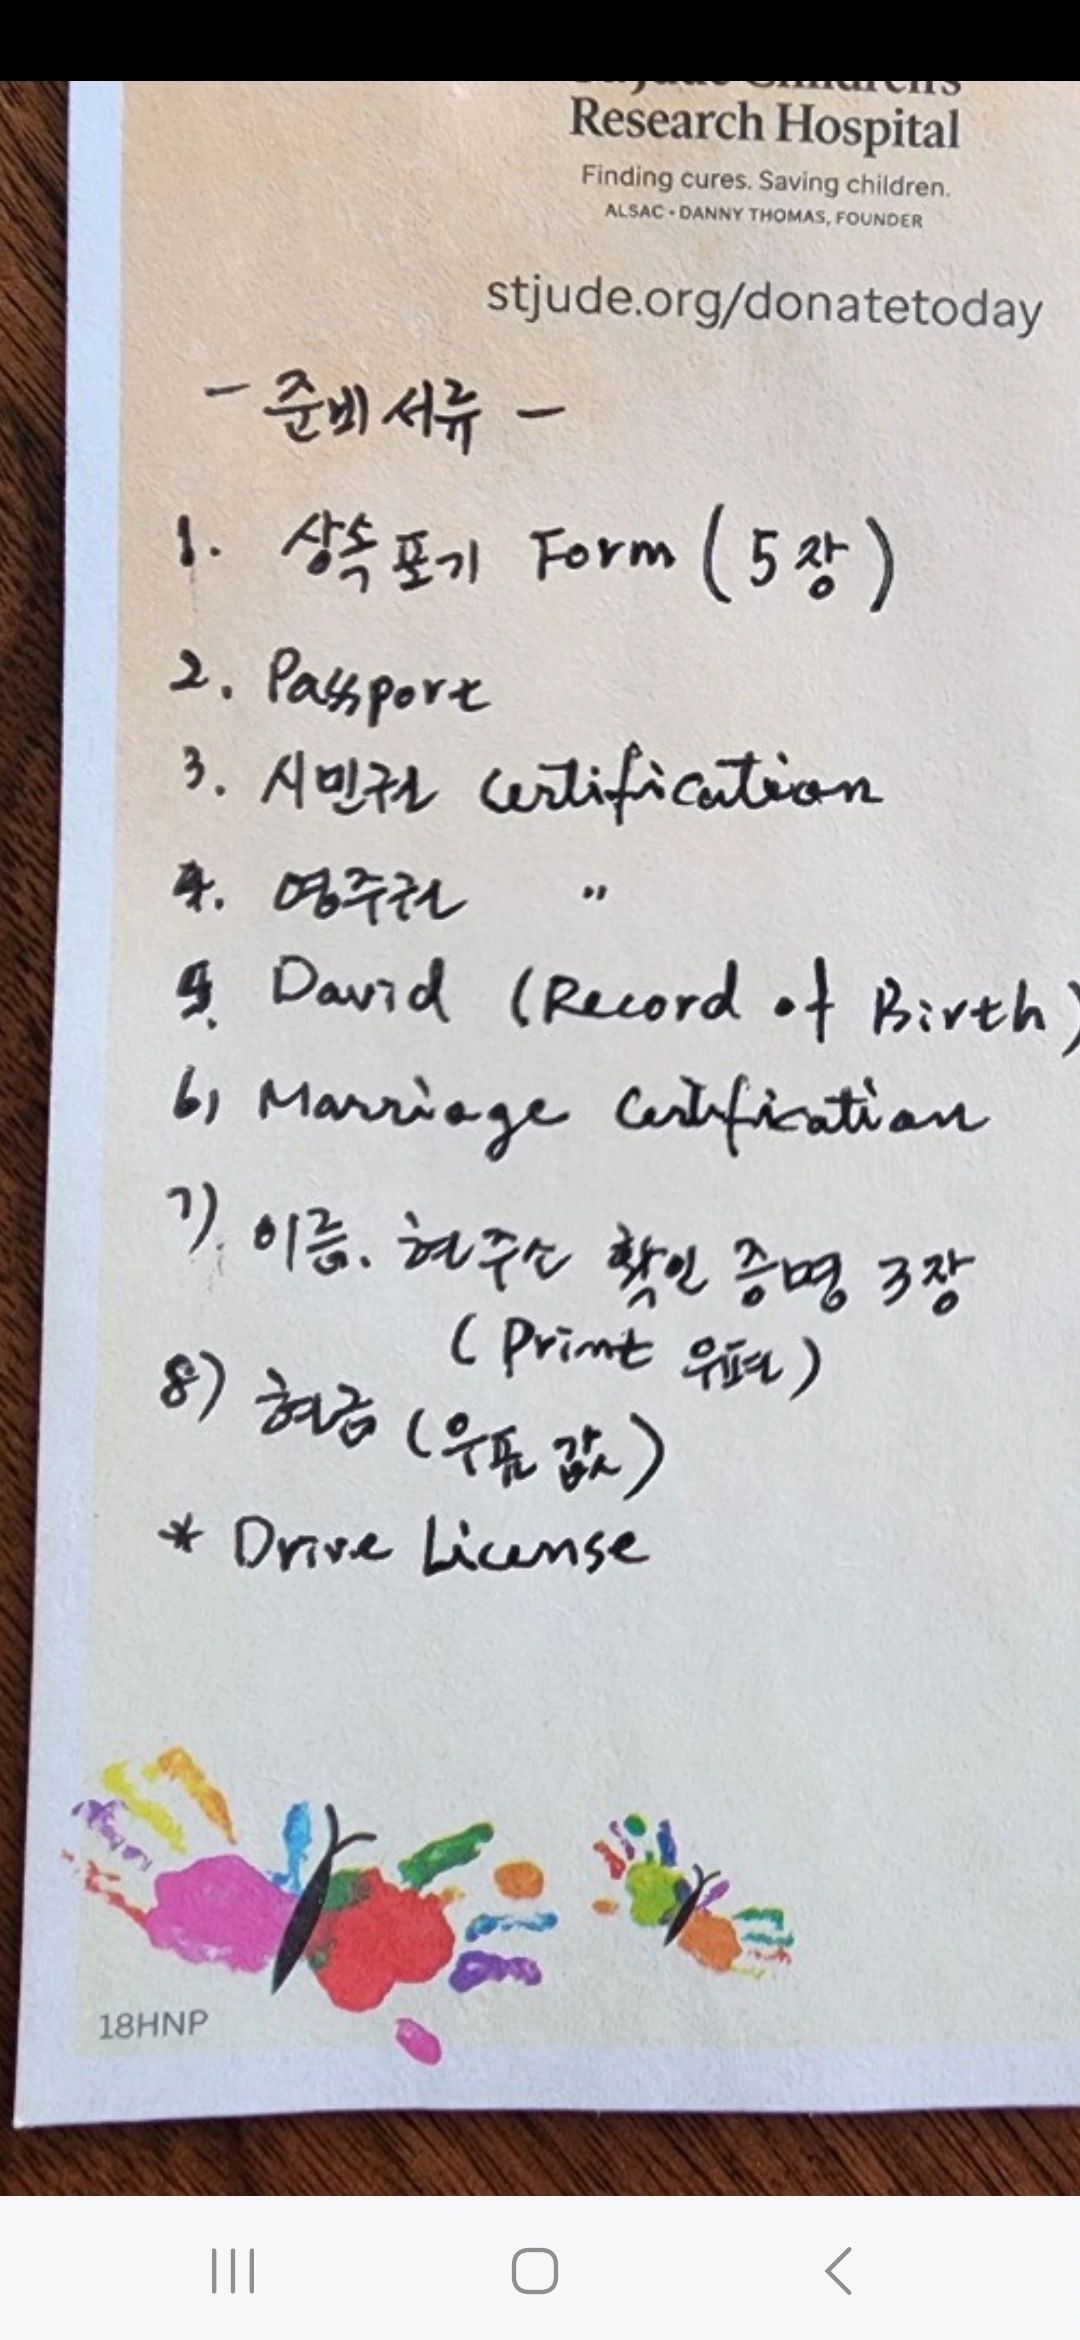 Research Hospital
Finding cures. Saving children.
ALSAC • DANNY THOMAS, FOUNDER
stjude.org/donatetoday
- 준비서류 -
1. 상속포기 Form (5장)
2. Passport
3. 시민권 Certification
4. 영주권 "
5. David (Record of Birth)
6) Marriage Certification
7). 이름. 현주소 확인 증명 3장
(Print 우편)
8) 현금 (우표 값)
* Drive License
18HNP